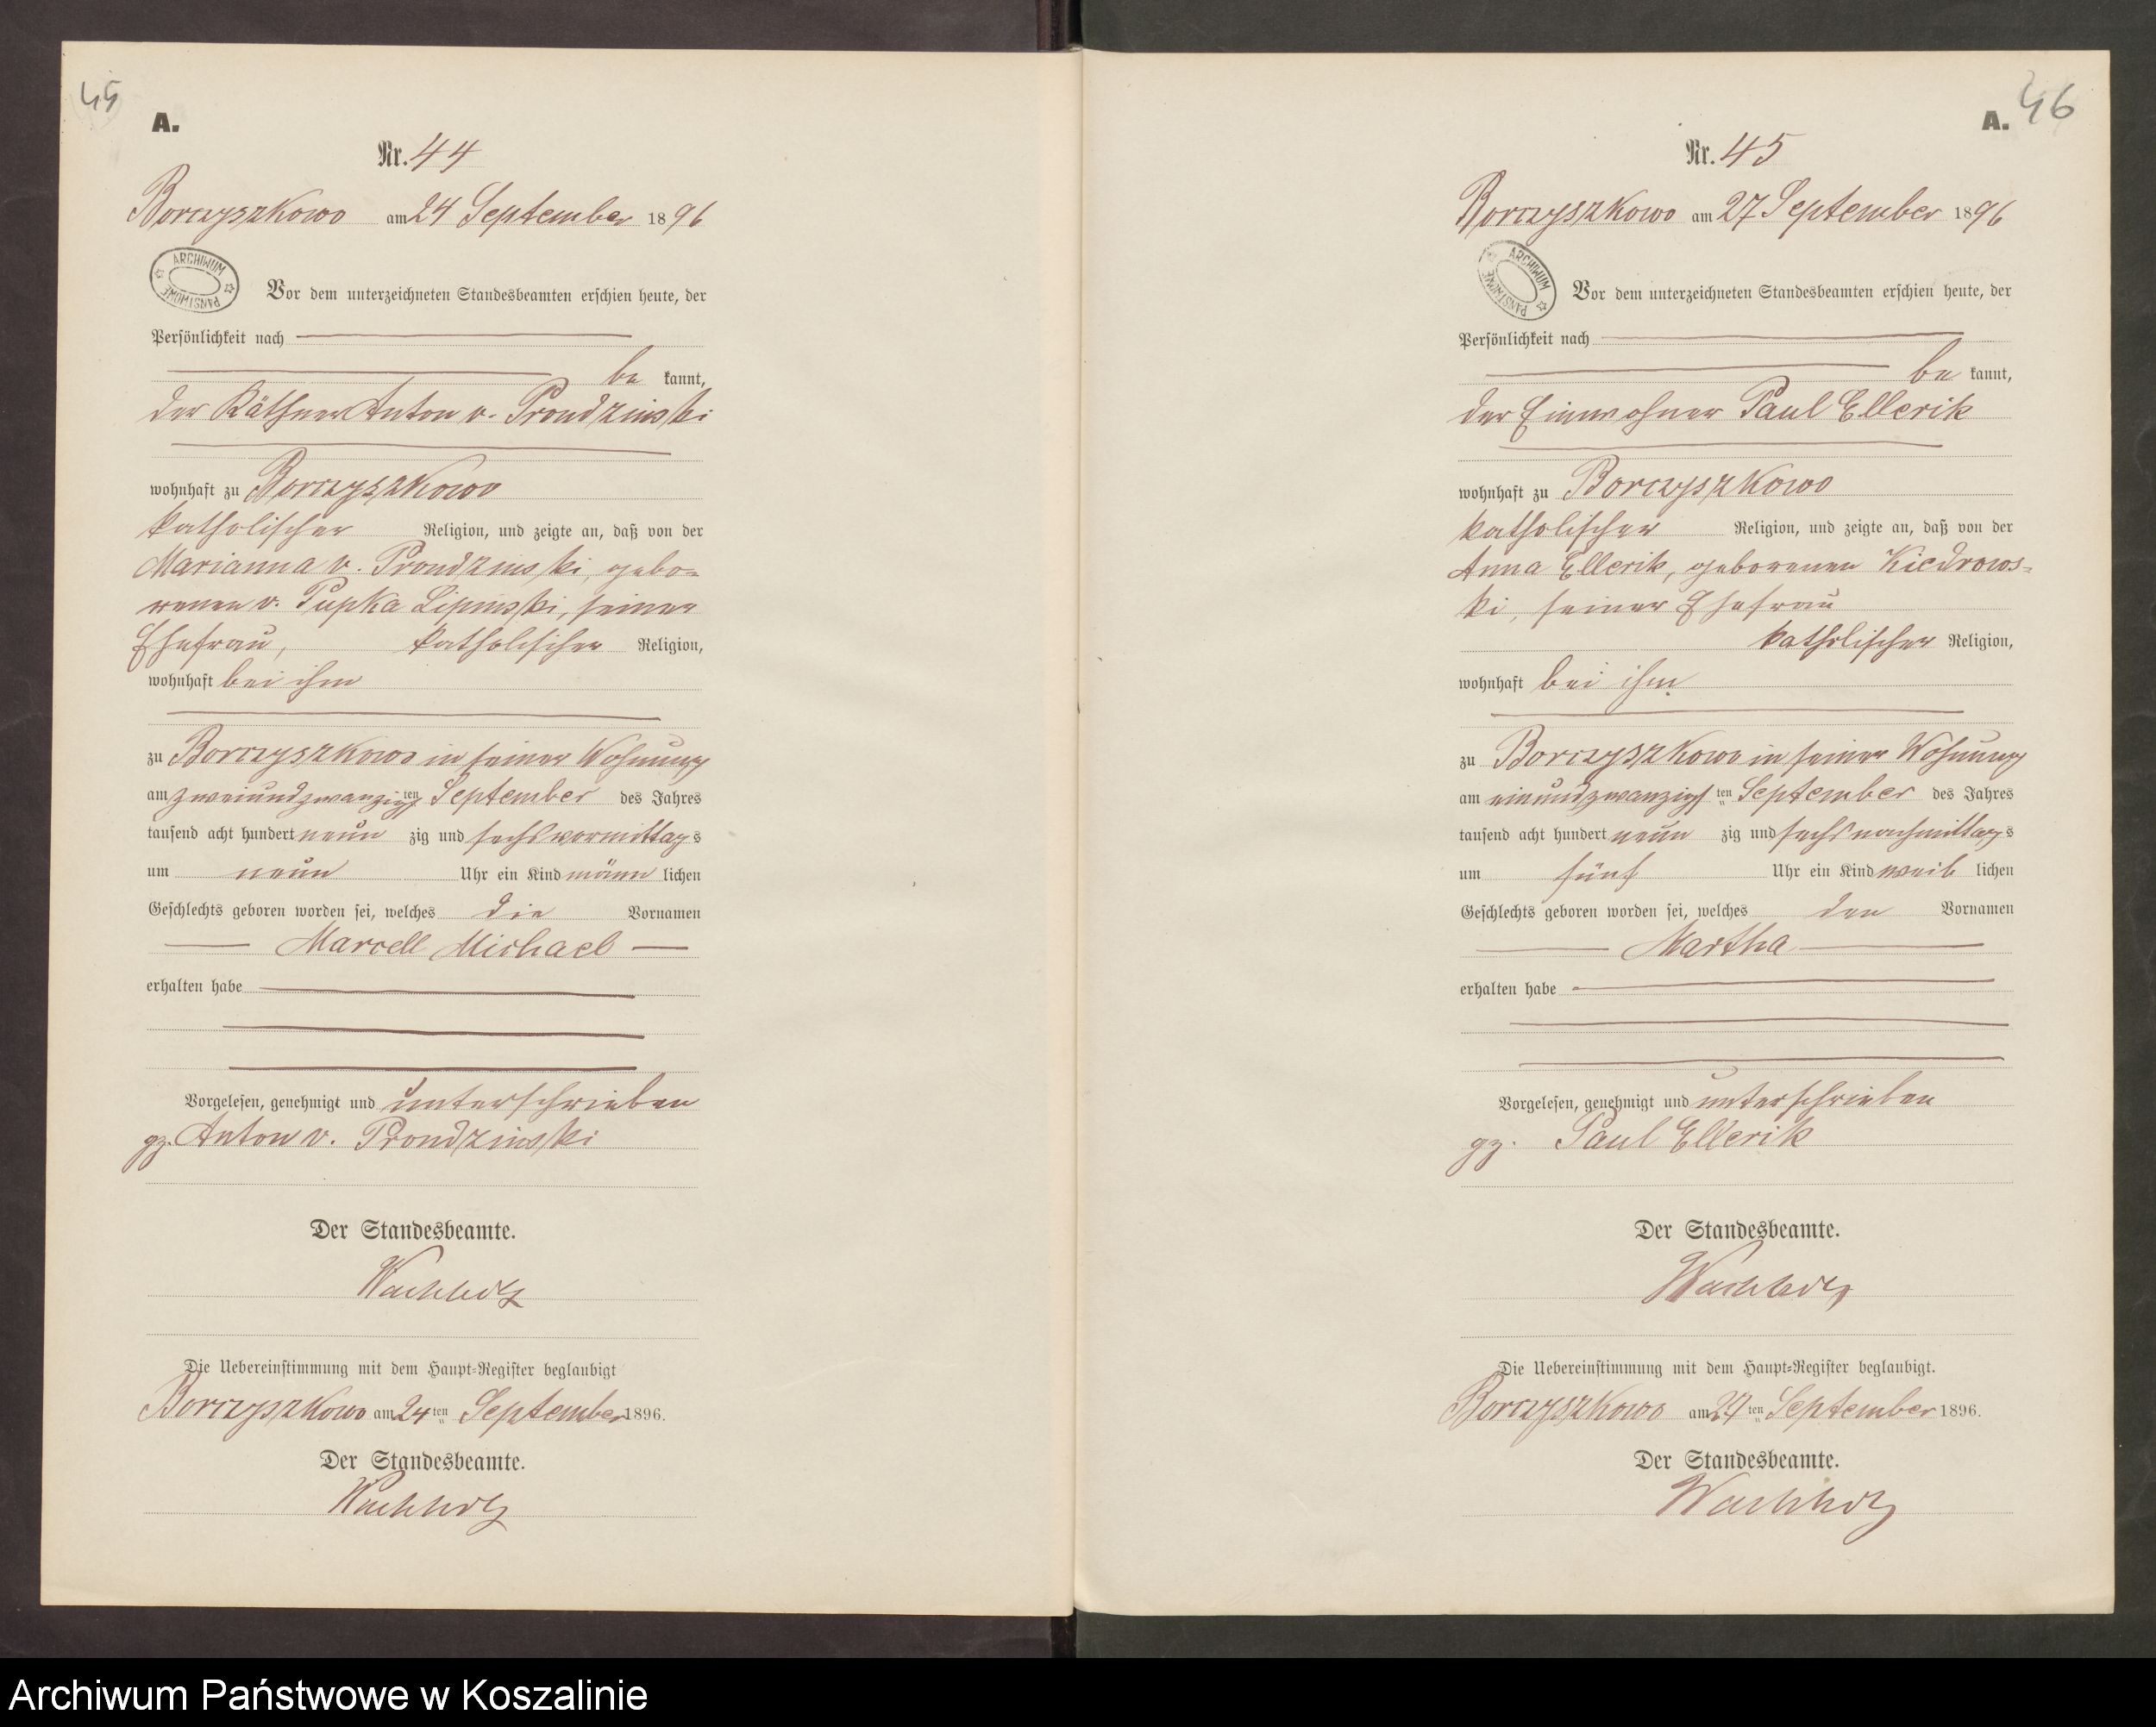 45
A.
Nr. 44
Borczyszkowo am 24 September 1896
ARCHIWUM PAŃSTWOWE
Vor dem unterzeichneten Standesbeamten erschien heute, der
Persönlichkeit nach
be kannt,
der Käthner Anton v. Prondzinski
wohnhaft zu Borczyszkowo
katholischer Religion, und zeigte an, daß von der
Marianna v. Prondzinski, gebo-
renen v. Pupka Lipinski, seiner
Ehefrau, katholischer Religion,
wohnhaft bei ihm
zu Borczyszkowo in seiner Wohnung
am zweiundzwanzigsten September des Jahres
tausend acht hundert neun zig und sechs vormittags
um neun Uhr ein Kind männ lichen
Geschlechts geboren worden sei, welches die Vornamen
Marcell Michael
erhalten habe
Vorgelesen, genehmigt und unterschrieben
gz. Anton v. Prondzinski
Der Standesbeamte.
Wachholz
Die Uebereinstimmung mit dem Haupt-Register beglaubigt
Borczyszkowo am 24ten September 1896.
Der Standesbeamte.
Wachholz
46
A.
Nr. 45
Borczyszkowo am 27 September 1896
ARCHIWUM PAŃSTWOWE
Vor dem unterzeichneten Standesbeamten erschien heute, der
Persönlichkeit nach
be kannt,
der Einwohner Paul Ellerik
wohnhaft zu Borczyszkowo
katholischer Religion, und zeigte an, daß von der
Anna Ellerik, geborenen Kiedrows-
ki, seiner Ehefrau
katholischer Religion,
wohnhaft bei ihm
zu Borczyszkowo in seiner Wohnung
am einundzwanzigsten September des Jahres
tausend acht hundert neun zig und sechs nachmittags
um fünf Uhr ein Kind weib lichen
Geschlechts geboren worden sei, welches den Vornamen
Martha
erhalten habe
Vorgelesen, genehmigt und unterschrieben
gz. Paul Ellerik
Der Standesbeamte.
Wachholz
Die Uebereinstimmung mit dem Haupt-Register beglaubigt.
Borczyszkowo am 27ten September 1896.
Der Standesbeamte.
Wachholz
Archiwum Państwowe w Koszalinie